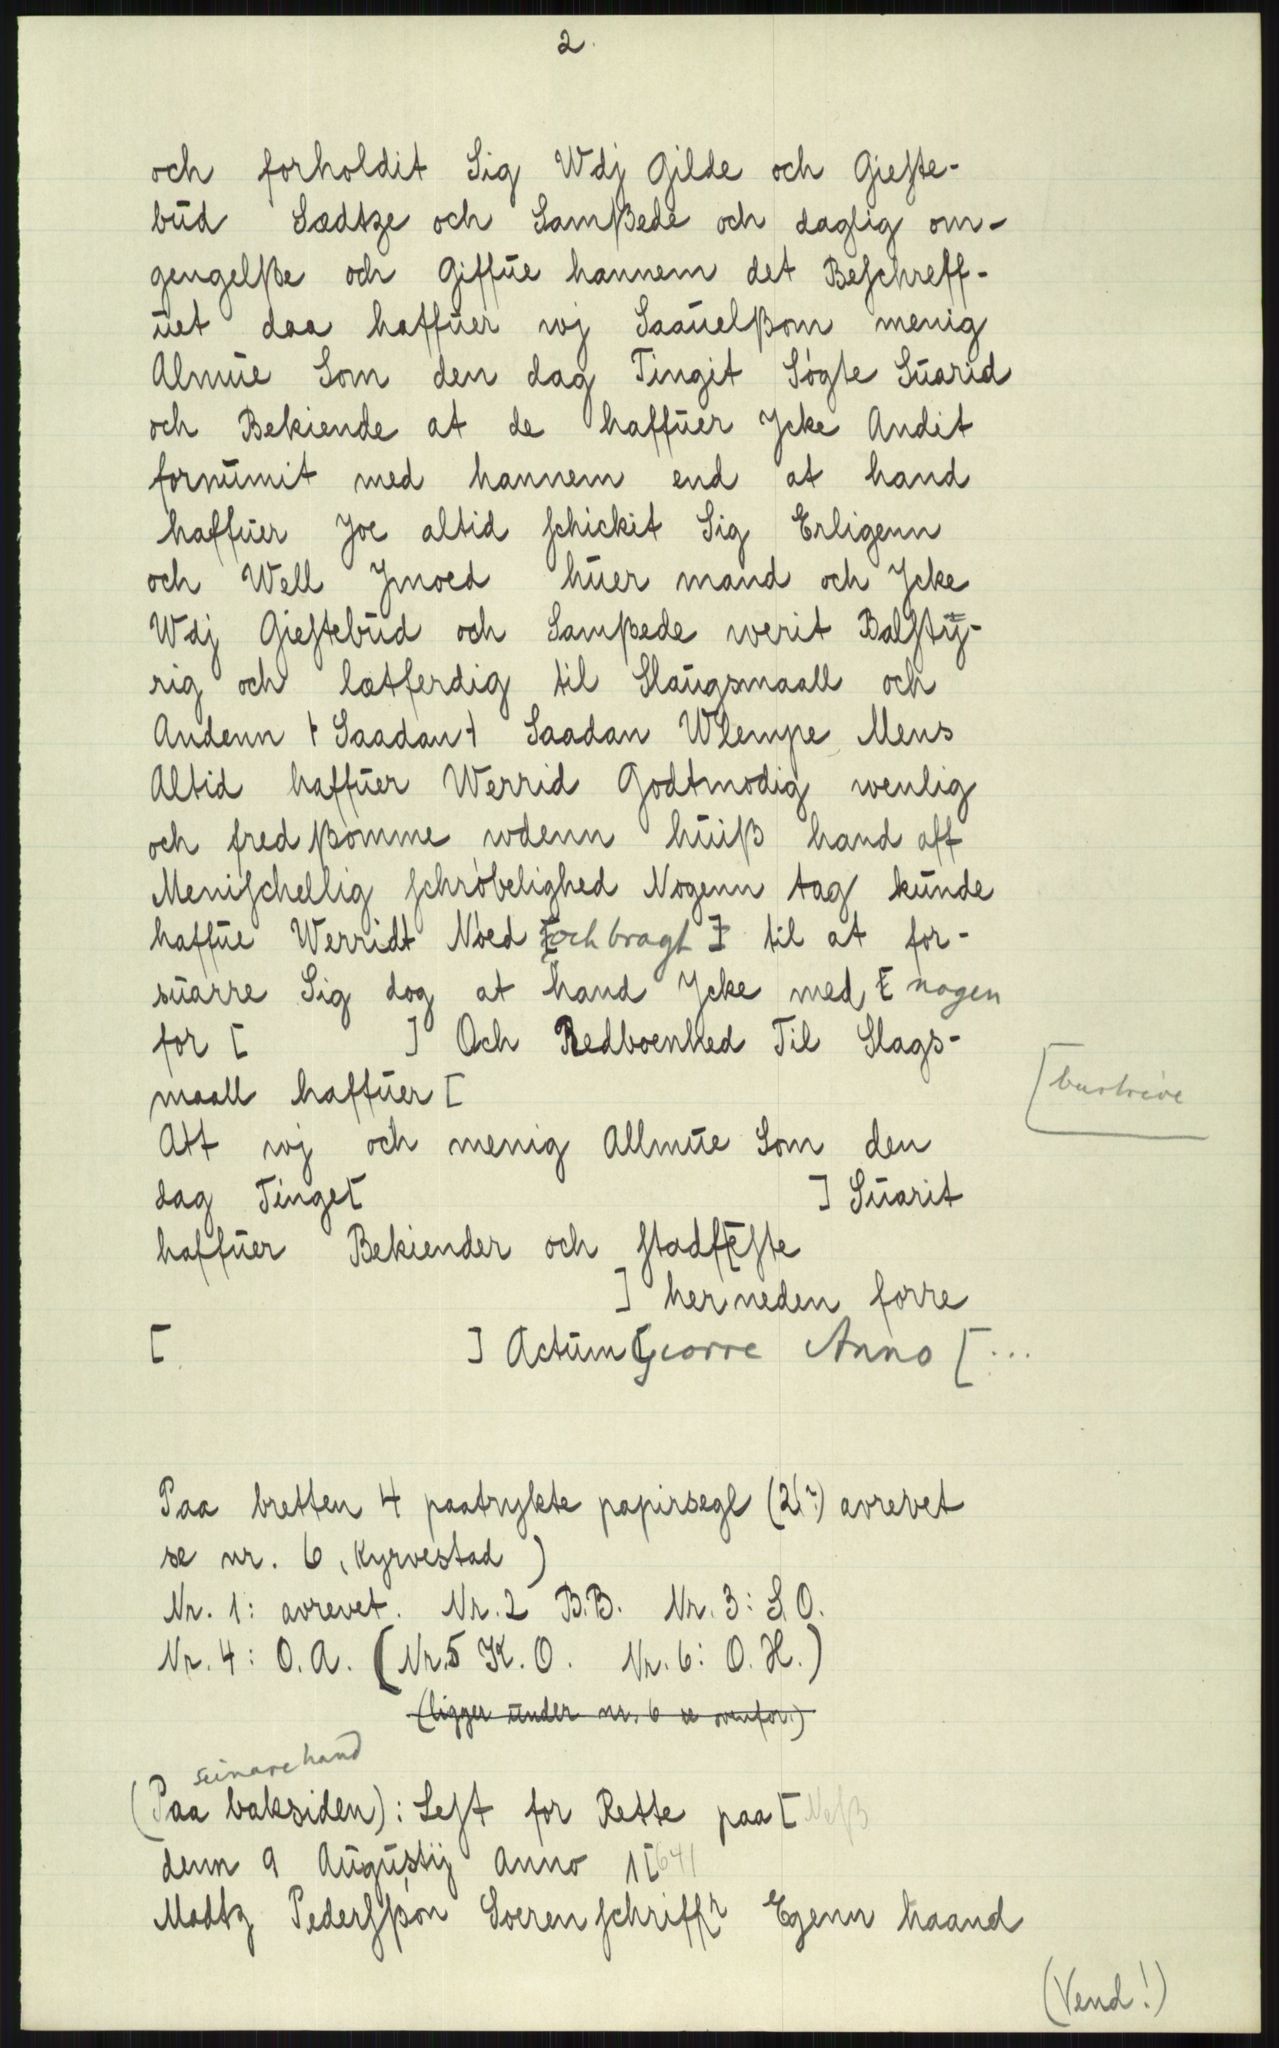 2.
och forholdit Sig Wdj Gilde och Gieste-
bud Sædtze och Samßede och daglig om-
gengelße och Giffue hannem det Beschreff-
uet daa haffuer wj Saauelßom menig
Almue Som den dag Tingit Søgte Suarid
och Bekiende at de haffuer Jcke Andit
fornumit med hannem end at hand
haffuer Joe altid schickit Sig Erligenn
och Well Jmoed huer mand och Jcke
Wdj Giestebud och Samßede werit Balsty-
rig och lætferdig til Slaugsmaall och
Andenn ⟊ Saadan ⟊ Saadan Wlempe Mens
Altid haffuer Werrid Godtmodig wenlig
och fredßomme wdenn huiß hand aff
Menischellig schrøbelighed Nogenn tag kunde
haffue Werridt Nøed [och bragt] til at for-
suarre Sig dog at hand Jcke med [nogen
for [ ] Och Redboenhed Til Slags-
maall haffuer [
[burtrive
Att wj och menig Allmue Som den
dag Tinge[ ] Suarit
haffuer Bekiender och stadf[este
] her neden forre
[ ] Actum [Giorre Anno [...
Paa bretten 4 paatrykte papirsegl (2(?) avrevet
se nr. 6, Kyrvestad )
Nr. 1: avrevet. Nr. 2 B.B. Nr. 3: S.O.
Nr. 4: O.A. (Nr. 5 K.O. Nr. 6: O.H.)
(ligger under nr. 6 se ovenfor.)
seinare hand
(Paa baksiden): Lest for Rette paa [Neß
denn 9 Augustij Anno 1[641
Madtz Pederßøn Soerenschriffr Egenn haand
(Vend!)